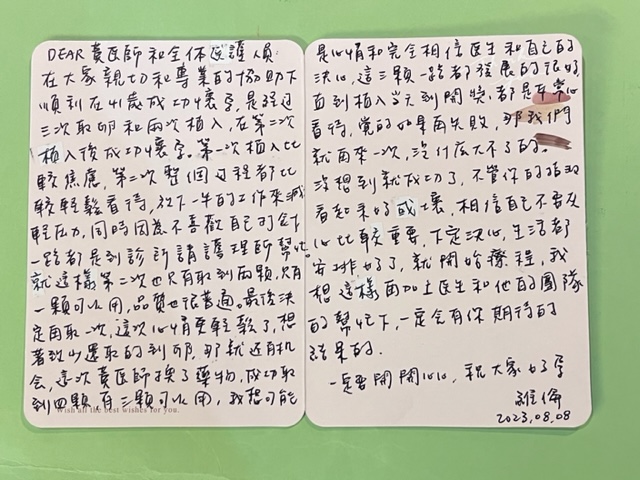 DEAR 黃医師和全体医護人員:
在大家親切和專業的協助下
順利在41歲成功懷孕,是經過
三次取卵和兩次植入,在第二次
植入後成功懷孕。第一次植入比
較焦慮,第二次整個过程都比
較輕鬆看待,放下一半的工作來減
輕压力,同時因為不喜歡自己打針
一路都是到診所請護理師幫忙。
就這樣第二次也只有取到兩顆,只有
一顆可以用,品質也很普通。最後決
定再取一次,這次心情更輕鬆了,想
著致少還取的到卵,那就还有机
会,這次黃医師換了藥物,成功取
到四顆,有三顆可以用,我想可能
Wish all the best wishes for you.
是心情和完全相信医生和自己的
決心,這三顆一路都發展的很好,
直到植入当天到開獎,都是平常心
看待,覺的如果再失敗,那我們
就再來一次,沒什麼大不了的。
沒想到就成功了,不管你的指数
看起來好或壞,相信自己不要灰
心比較重要,下定決心,生活都
安排好了,就開始療程,我
想這樣再加上医生和他的團隊
的幫忙下,一定会有你期待的
結果的.
一定要開開心心,祝大家好孕
2023.08.08